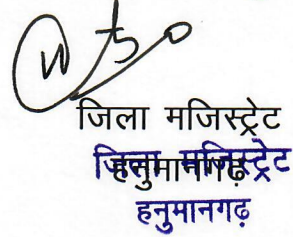 जिला मजिस्ट्रेट
हनुमानगढ़
जिला मजिस्ट्रेट
हनुमानगढ़